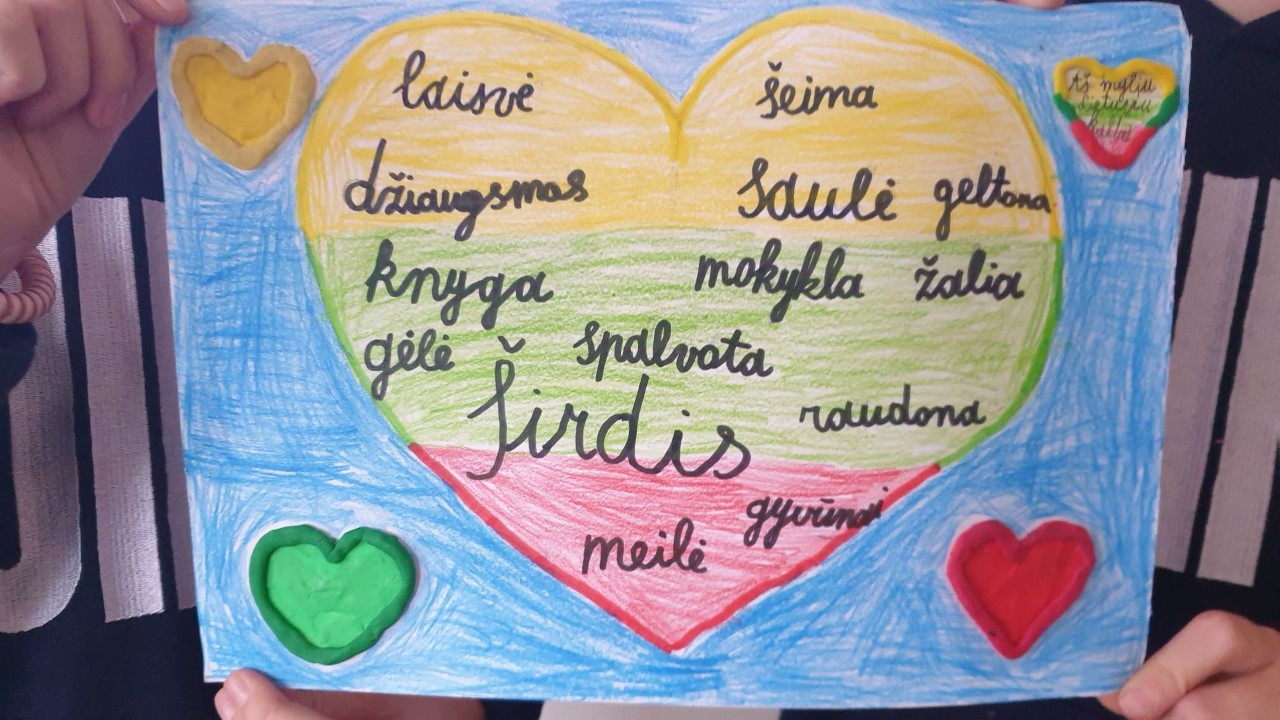 laisvė šeima
Aš myliu
lietuvių
kalbą
džiaugsmas Saulė geltona
knyga mokykla žalia
gėlė spalvota
Širdis raudona
gyvūnai
meilė